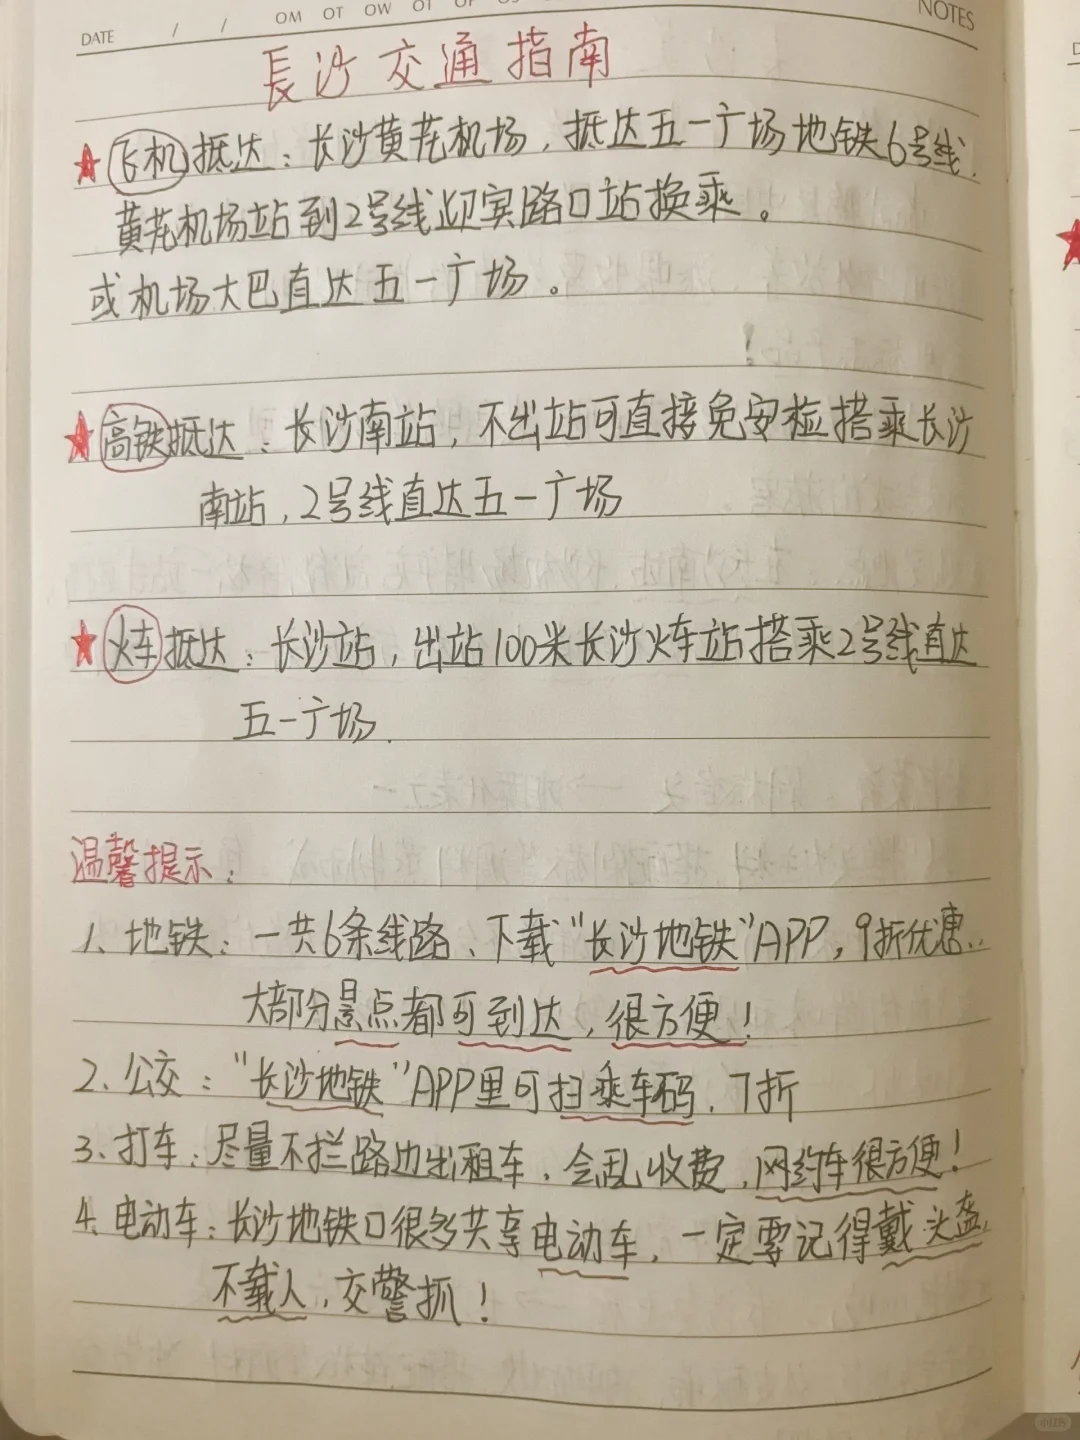 DATE / / OM OT OW OT
NOTES
長沙交通指南
飞机抵达：长沙黄花机场，抵达五一广场地铁6号线，
黄花机场站到2号线迎宾路口站换乘。
或机场大巴直达五一广场。
高铁抵达：长沙南站，不出站可直接免安检搭乘长沙
南站，2号线直达五一广场
火车抵达：长沙站，出站100米长沙火车站搭乘2号线直达
五一广场.
温馨提示：
1、地铁：一共6条线路、下载“长沙地铁”APP，9折优惠..
大部分景点都可到达，很方便！
2、公交：“长沙地铁”APP里可扫乘车码，7折
3、打车：尽量不拦路边出租车，会乱收费，网约车很方便！
4、电动车：长沙地铁口很多共享电动车，一定要记得戴头盔，
不载人，交警抓！
小红书